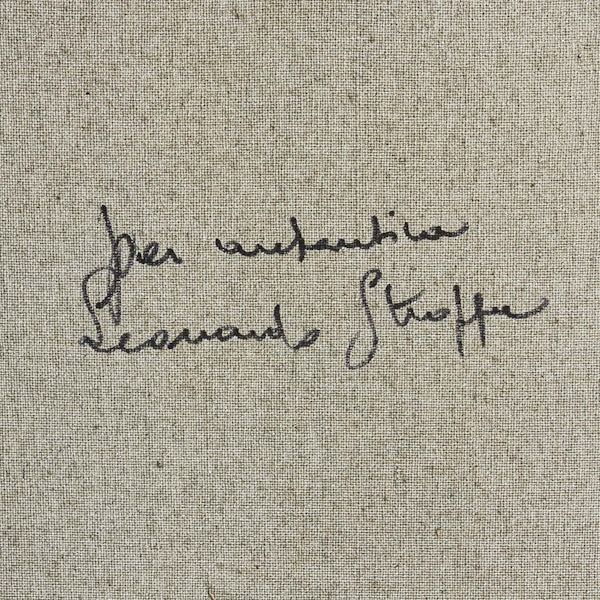 per autentica
Leonardo Stroppa